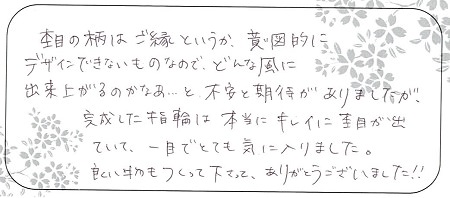 杢目の柄は ご縁というか、意図的に
デザインできないものなので、どんな風に
出来上がるのかなあ…と、不安と期待がありましたが、
完成した指輪は 本当に キレイに 杢目が出
ていて、一目でとても気に入りました。
良い物をつくって下さって、ありがとうございました!!